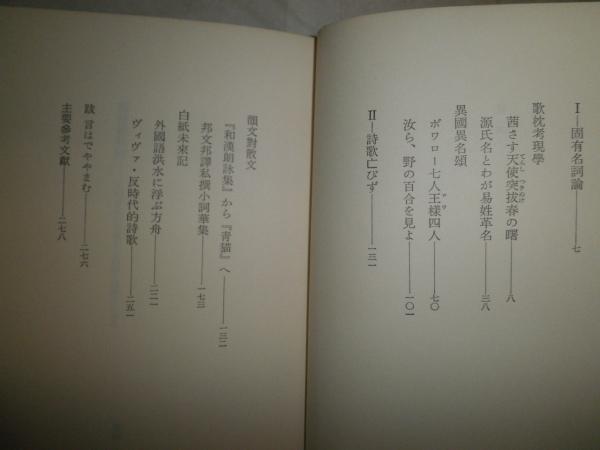 Ⅰ—固有名詞論——七
歌枕考現學
茜さす天使突拔春の曙——八
源氏名とわが易姓革名——三八
異國異名頌
ボワロー七人王樣四人——七〇
汝ら、野の百合を見よ——一〇一
Ⅱ—詩歌亡びず——一三一
韻文對散文
『和漢朗詠集』から『靑猫』へ——一三二
邦文邦譯私撰小詞華集——一七三
白紙未來記
外國語洪水に浮ぶ方舟——二二一
ヴィヴァ・反時代的詩歌——二五一
跋 言はでややまむ——二七六
主要參考文獻——二七八